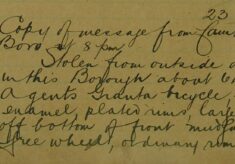 23
Copy of message from Cam
Boro at 8 pm
Stolen from outside
in this Borough about 6
Agents Granta bicycle,
enamel, plated rims, large
off bottom of front mud
free wheel, ordinary